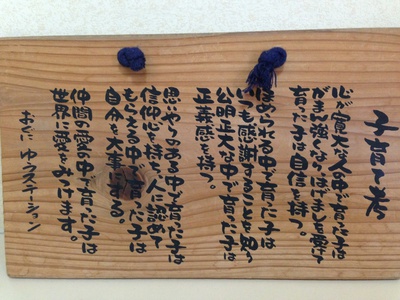 子育て考
心が寛大な人の中で育った子は
がまん強くなるはげましを受けて
育った子は自信を持つ。
ほめられる中で育った子は
いつも感謝することを知る
公明正大な中で育った子は
正義感を持つ。
思いやりのある中で育った子は
信仰心を持つ、人に認めて
もらえる中で育った子は
自分を大事にする。
仲間の愛の中で育った子は
世界に愛をみつけます。
おぐに ゆうステーション